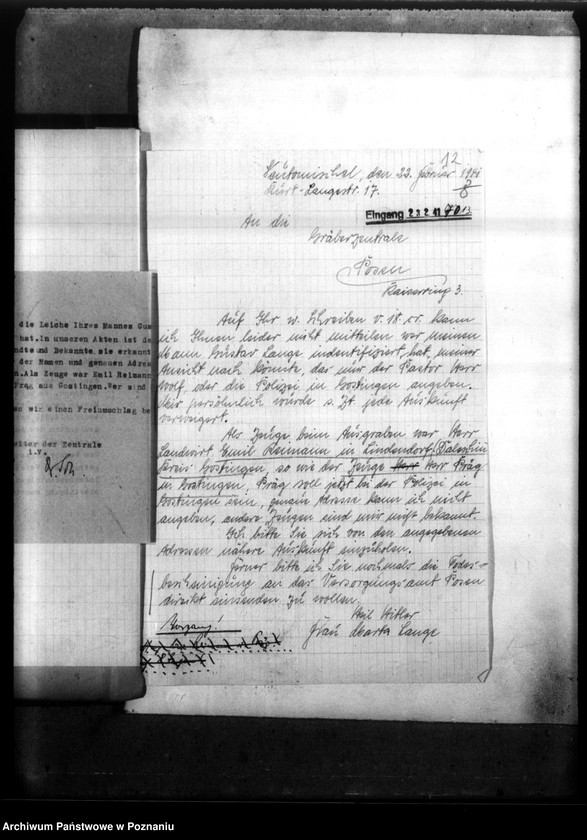 12
Neutomischel, den 22. Februar 1941
Kurt-Langestr. 17.
8
Eingang 23.2.41
An die
Gräberzentrale
Posen
Kaiserring 3.
Auf Ihr w. Schreiben v. 18. cr. kann
ich Ihnen leider nicht mitteilen wer meinen
Mann Gustav Lange indentifiziert hat, meiner
Ansicht nach könnte, das nur der Pastor Herr
Wolf, oder die Polizei in Gostingen angeben.
Mir persönlich wurde s. Zt jede Auskunft
verweigert.
Als Zeuge beim Ausgraben war Herr
Landwirt Emil Reimann in Lindendorf, Dalewhin
Kreis Gostingen, so wie der Zeuge Herr Herr Präg
in Gostingen, Präg soll jetzt bei der Polizei in
Gostingen sein, genaue Adresse kann ich nicht
angeben, andere Zeugen sind mir nicht bekannt.
Ich bitte Sie sich von den angegebenen
Adressen nähere Auskunft einzuholen.
Ferner bitte ich Sie nochmals die Todes-
bescheinigung an das Versorgungsamt Posen
direkt einsenden zu wollen.
Heil Hitler
Frau Marta Lange
Vorgang!
die Leiche Ihres Mannes Gus
hat. In unseren Akten ist de
ndte und Bekannte, sie erkannt
der Namen und genauen Adres
n. Als Zeuge war Emil Reimann
Präg aus Gostingen. Wer sind
en wir einen Freiumschlag be
eiter der Zentrale
i.V.
Archiwum Państwowe w Poznaniu